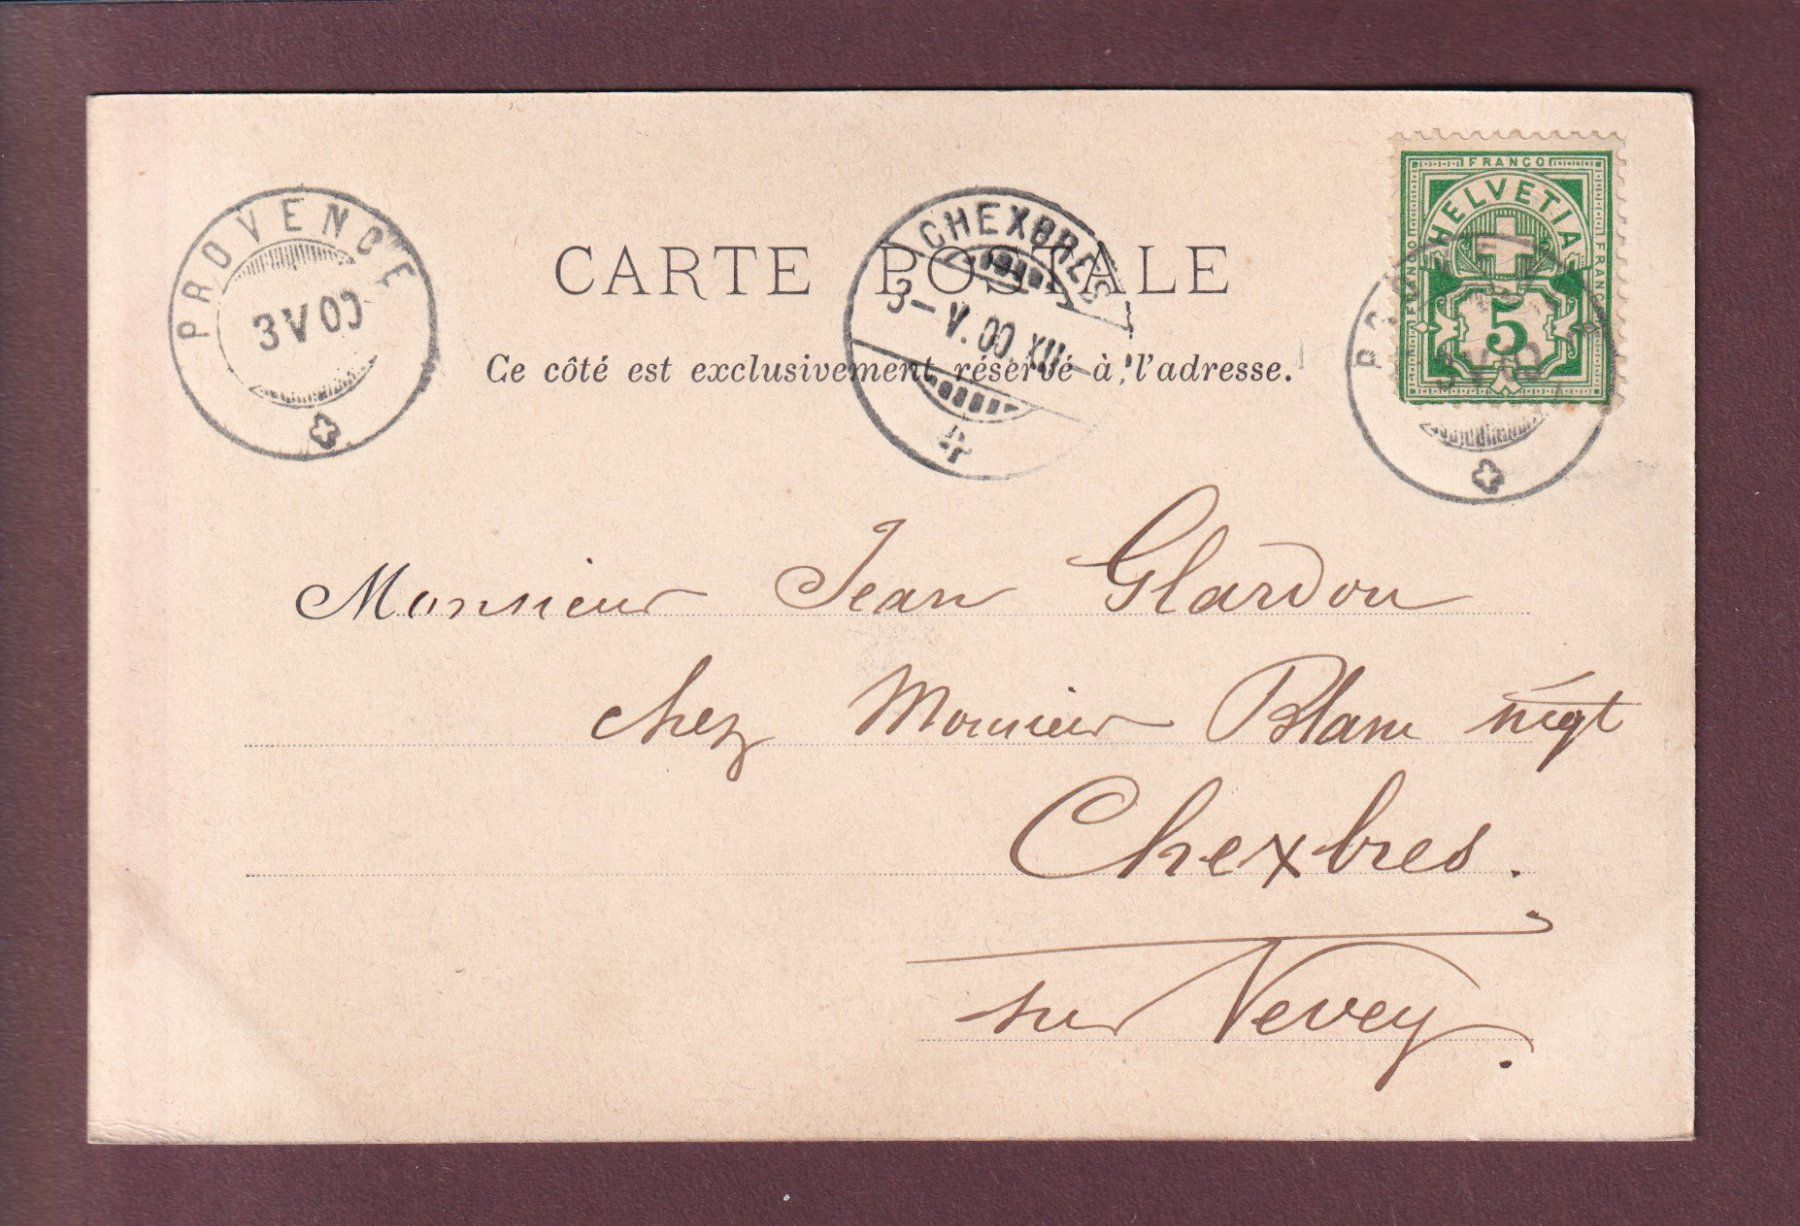 PROVENCE
3 V 00
CHEXBRES
3 – V. 00. XII –
CARTE POSTALE
Ce côté est exclusivement réservé à l'adresse.
FRANCO
FRANCO
FRANCO
HELVETIA
5
Monsieur Jean Glardon
chez Monsieur Blanc négt
Chexbres.
sur Vevey.